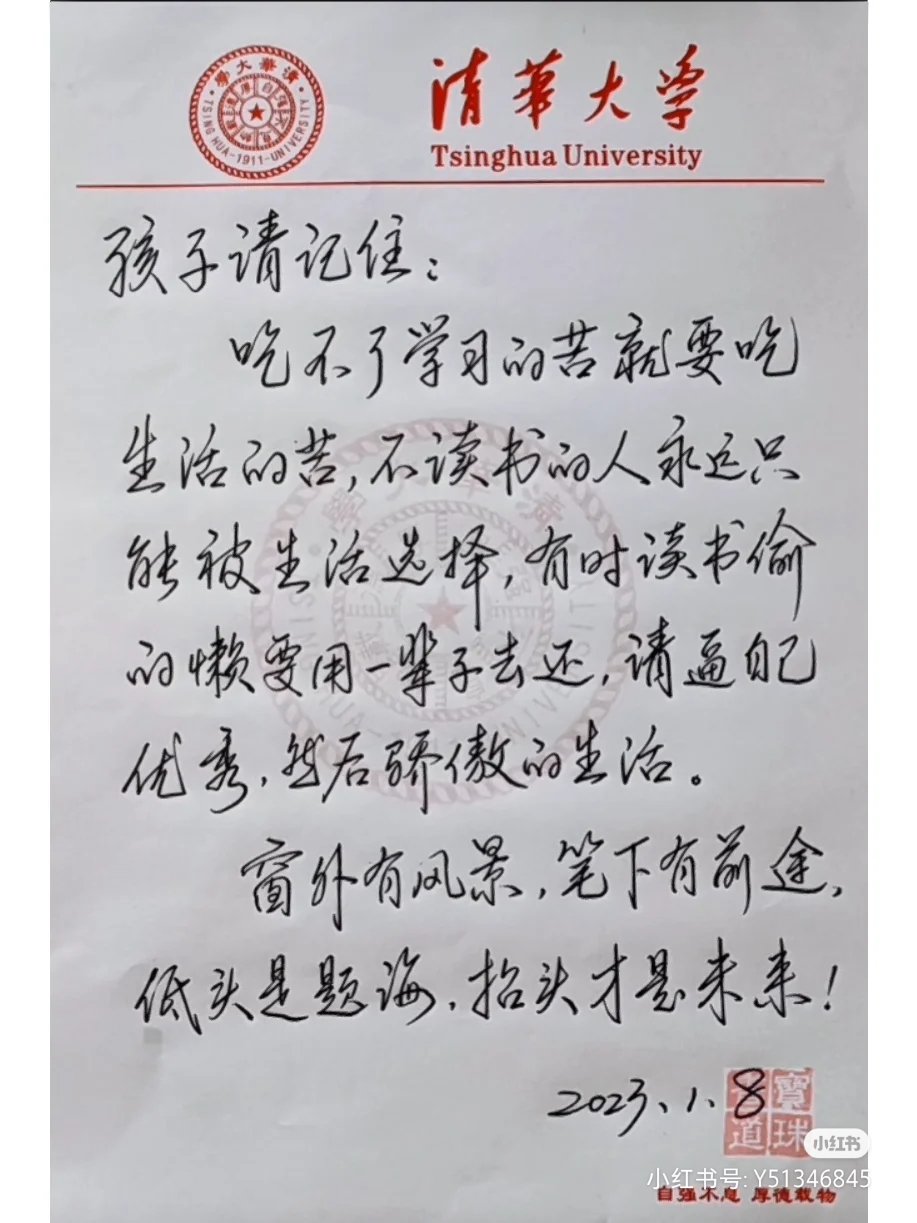 清華大學
TSINGHUA-1911-UNIVERSITY
清华大学
Tsinghua University
孩子请记住：
吃不了学习的苦就要吃
生活的苦，不读书的人永远只
能被生活选择，有时读书偷
的懒要用一辈子去还，请逼自己
优秀，然后骄傲的生活。
窗外有风景，笔下有前途，
低头是题海，抬头才是未来！
2023.1.8
寶珠
道
小红书
小红书号：Y51346845
自强不息 厚德载物